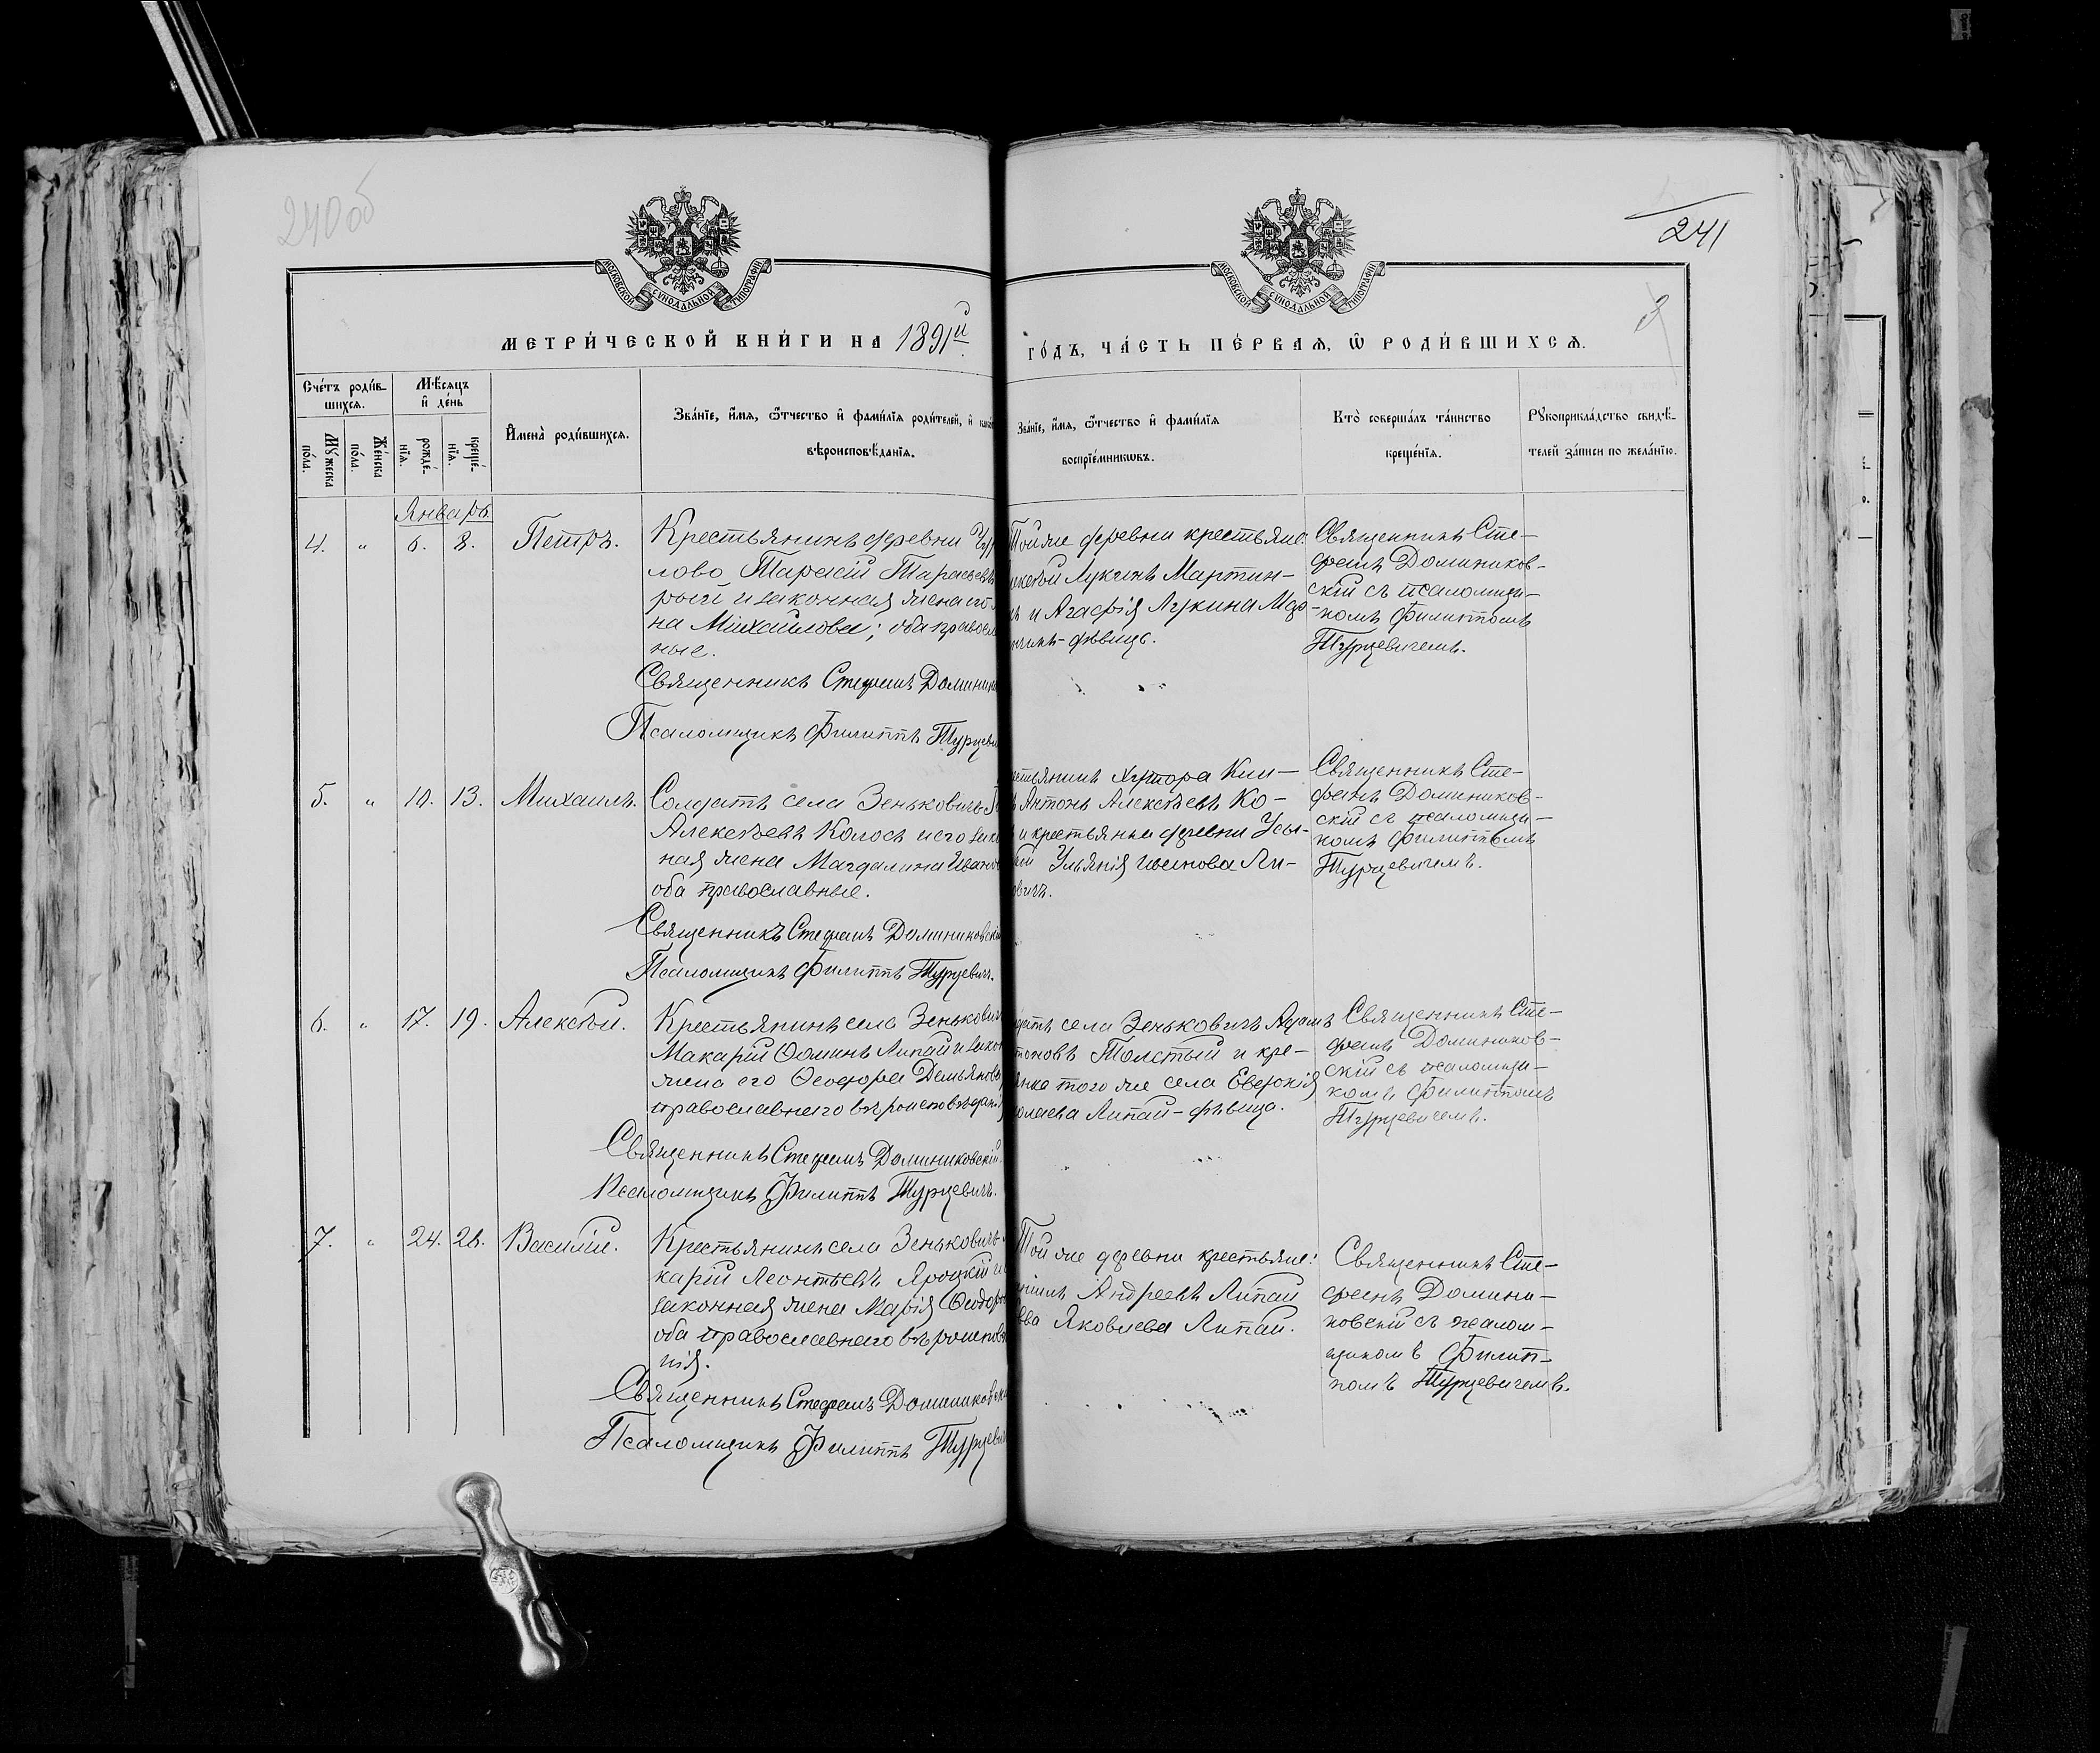 240об
241
3
МОСКОВСКОЙ СУНОДАЛЬНОЙ ТИПОГРАФІИ
МОСКОВСКОЙ СУНОДАЛЬНОЙ ТИПОГРАФІИ
МЕТРИ́ЧЕСКОЙ КНИ́ГИ НА 1891й
ГО́ДЪ, ЧА́СТЬ ПЕ́РВАѦ, Ѡ҆ РОДИ́ВШИХСѦ.
Сче́тъ роди́в-
шихсѧ.
Мꙋ́жеска
по́ла.
Же́нска
по́ла.
Мѣ́сѧцъ
и҆ де́нь
рожде́-
нїѧ.
креще́-
нїѧ.
И҆мена̀ роди́вшихсѧ.
Зва́нїе, и҆́мѧ, ѻ҆́тчество и҆ фами́лїѧ роди́телей, и҆
вѣроисповѣ́данїѧ.
Зва́нїе, и҆́мѧ, ѻ҆́тчество и҆ фами́лїѧ
воспрїе́мникѡвъ.
Кто̀ соверша́лъ та́инство
креще́нїѧ.
Рꙋкоприкла́дство свидѣ́-
телей за́писи по жела́нїю.
Январь
4. „ 6. 8. Петръ.
Крестьянинъ деревни
лово, Тарасій Тарасьевъ
и законная жена его
на Михайлова; оба православ
ные.
Священникъ Стефанъ
Псаломщикъ Филиппъ
Той же деревни крестьяне:
Лукинъ Мартин-
и Агафія Лукина Мар-
дѣвица.
Священникъ Сте-
фанъ Домиников-
скій съ псаломщи-
комъ Филиппомъ
Турцевичемъ.
5. „ 10. 13. Михаилъ.
Солдатъ села Зеньковичъ
Алексѣевъ Колосъ и его зако
ная жена Магдалина
оба православные.
Священникъ Стефанъ Доминиковскій
Псаломщикъ Филиппъ Турцевичъ.
Хутора
Антонъ Алексѣевъ Ко-
и крестьянка деревни
Ульянія
Священникъ Сте-
фанъ Домиников-
скій съ псаломщи-
комъ Филиппомъ
Турцевичемъ.
6. „ 17. 19. Алексѣй.
Крестьянинъ села Зенькович
Макарій Ѳоминъ Липай и закон
жена его Ѳеодора Демьянова
православнаго вѣроисповѣданія
Священникъ Стефанъ Доминиковскій.
Псаломщикъ Филиппъ Турцевичъ.
села Зеньковичъ Адамъ
Толстый и кре-
того же села Евдокія
Липай-дѣвица.
Священникъ Сте-
фанъ Домиников-
скій съ псаломщи-
комъ Филиппомъ
Турцевичемъ.
7. „ 24. 26. Василій.
Крестьянинъ села Зеньковичъ
карій Леонтьевъ Яроцкій и
законная жена Марія Ѳеодор
оба православнаго вѣроисповѣ
нія.
Священникъ Стефанъ Доминиковскі
Псаломщикъ Филиппъ Турцеви
Той же деревни крестьяне:
Андреевъ Липай
Яковлева Липай.
Священникъ Сте-
фанъ Домини-
ковскій съ псалом-
щикомъ Филип-
помъ Турцевичемъ.